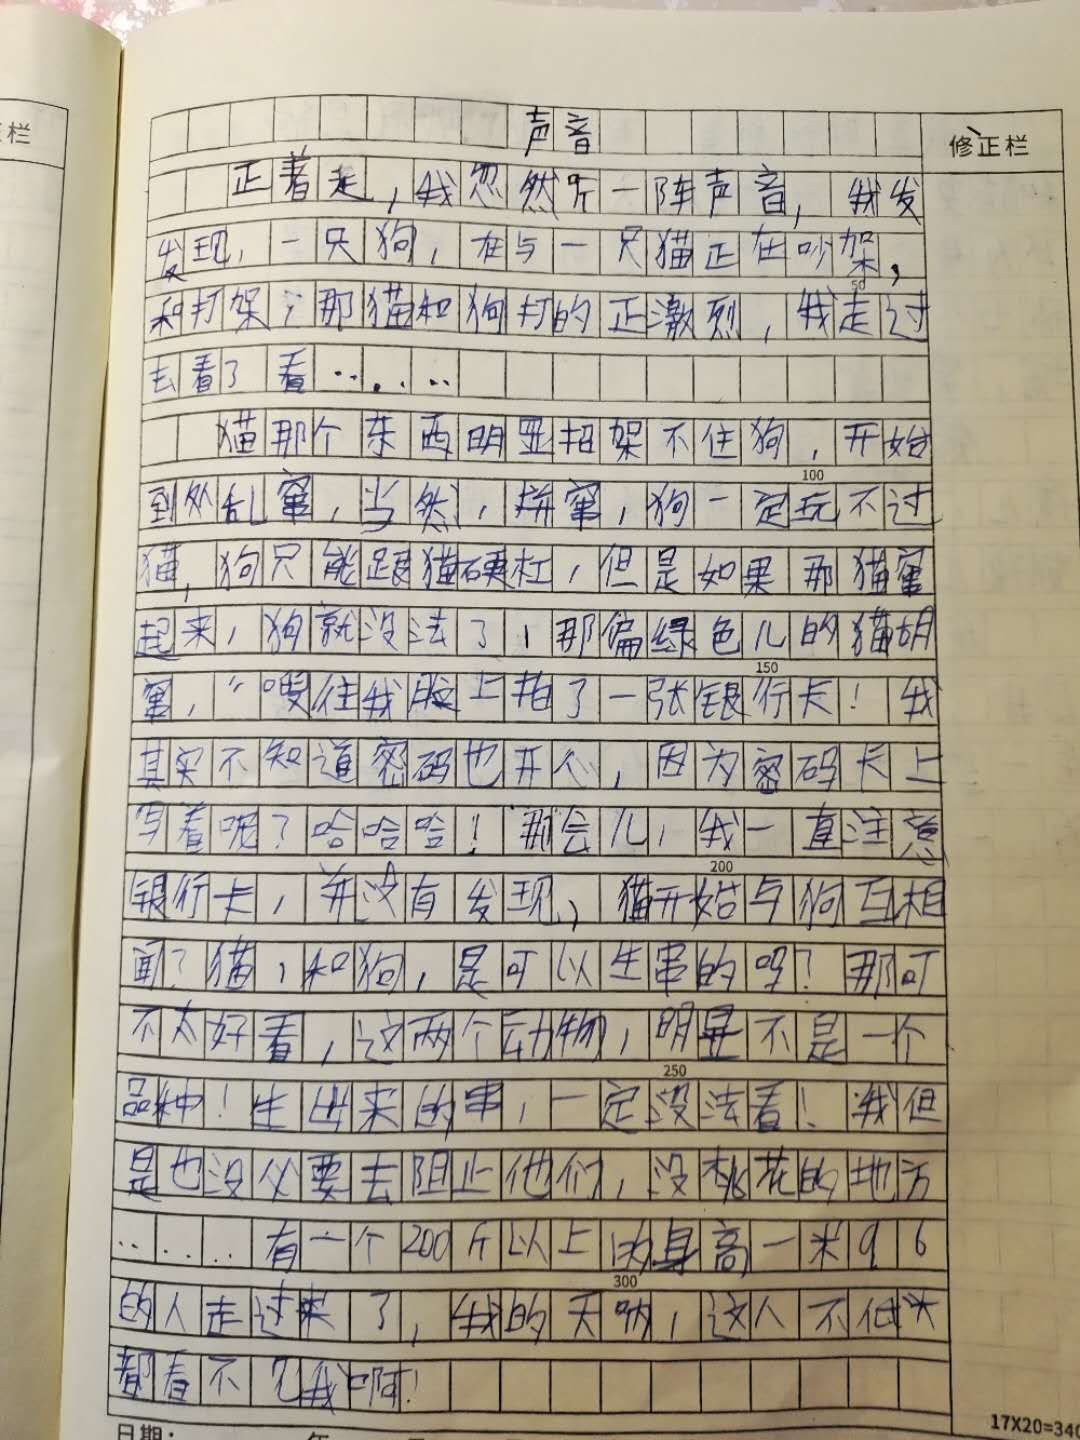 栏
修正栏
声音
正着走，我忽然听一阵声音，我发
发现，一只狗，在与一只猫正在吵架，
50
和打架；那猫和狗打的正激烈，我走过
去看了看……
猫那个东西明显招架不住狗，开始
100
到处乱窜，当然，拼窜，狗一定玩不过
猫，狗只能跟猫硬杠，但是如果那猫窜
起来，狗就没法了，那偏绿色儿的猫胡
150
窜，“嗖住我脸上拍了一张银行卡！我
其实不知道密码也开心，因为密码卡上
写着呢？哈哈哈！那会儿，我一直注意
200
银行卡，并没有发现，猫开始与狗互相
闻？猫，和狗，是可以生串的吗？那可
不太好看，这两个动物，明显不是一个
250
品种！生出来的串，一定没法看！我但
是也没必要去阻止他们，没桃花的地方
……有一个200斤以上的身高一米96
300
的人走过来了，我的天呐，这人不低头
都看不见我啊！
日期：
年
17X20=340